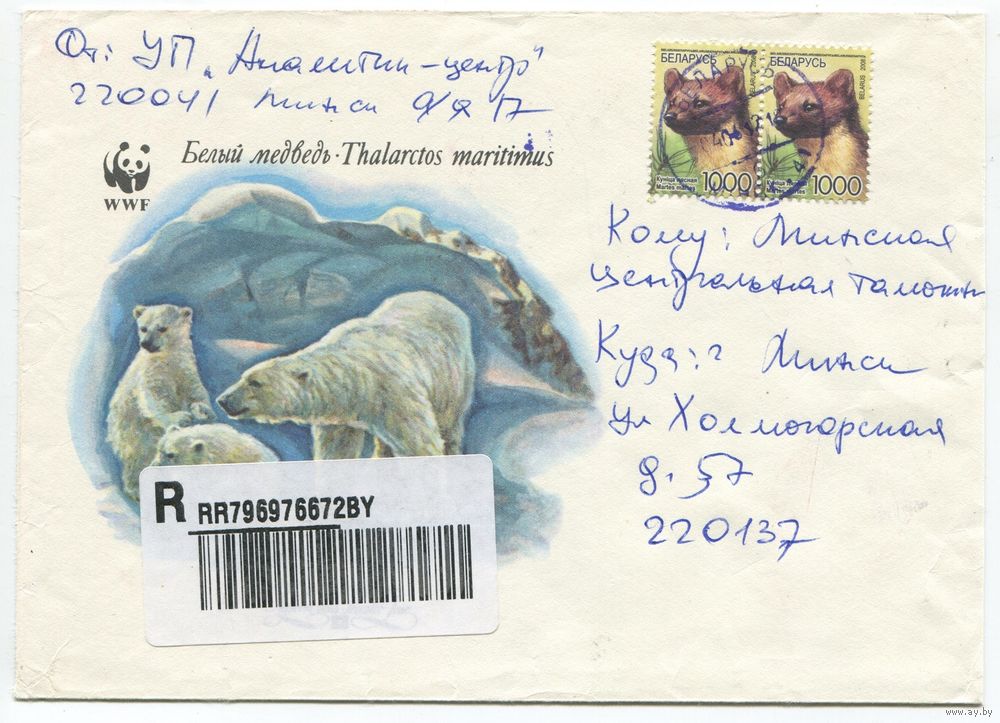 От: УП „Аналитик-центр"
220041 Минск а/я 17
WWF
Белый медведь · Thalarctos maritimus
БЕЛАРУСЬ
BELARUS 2008
Куніца лясная
Martes martes
1000
БЕЛАРУСЬ
BELARUS 2008
Куніца лясная
Martes martes
1000
Кому: Минская
центральная таможня
Куда: г Минск
ул Холмогорская
д. 57
220137
R RR796976672BY
www.ay.by